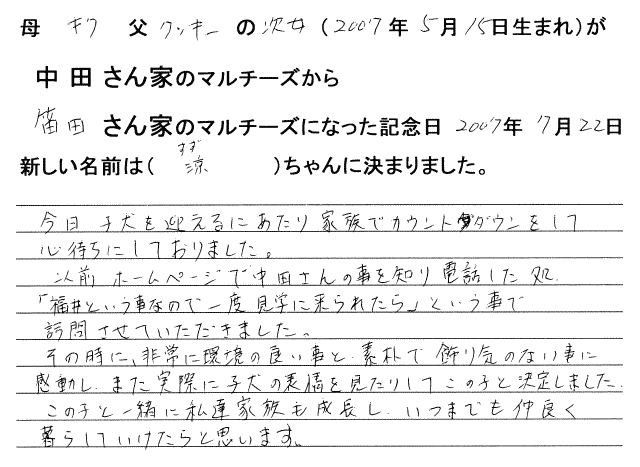 母 キワ 父 クッキー の次女(2007年5月15日生まれ)が
中田さん家のマルチーズから
笛田 さん家のマルチーズになった記念日 2007年7月22日
すず
新しい名前は( 涼 )ちゃんに決まりました。
今日 子犬を迎えるにあたり 家族でカウントダウンをして
心待ちにしておりました。
以前 ホームページで中田さんの事を知り 電話した処
「福井という事なので一度見学に来られたら」という事で
訪問させていただきました。
その時に、非常に環境の良い事と、素朴で飾り気のない事に
感動し、また実際に子犬の表情を見たりして この子と決定しました。
この子と一緒に私達家族も成長し、いつまでも仲良く
暮らしていけたらと思います。